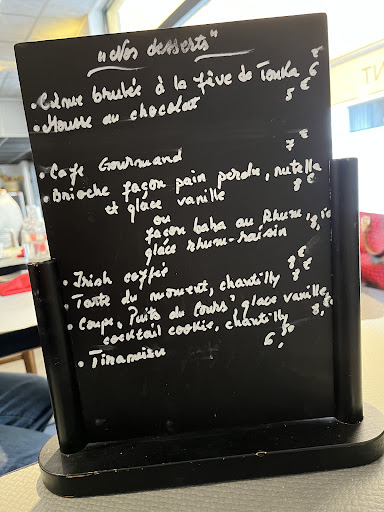 "Nos desserts"
• Crème brulée à la fève de Tonka 6€
• Mousse au chocolat 5€
• Café Gourmand 7€
• Brioche façon pain perdu, nutella
et glace vanille 8€
ou
façon baba au Rhum,
glace rhum-raisin
• Irish coffee 8€
• Tarte du moment, chantilly 8€
• Coupe "Puits du Cours" glace vanille,
cocktail cookie, chantilly
• Tiramisu 6,50